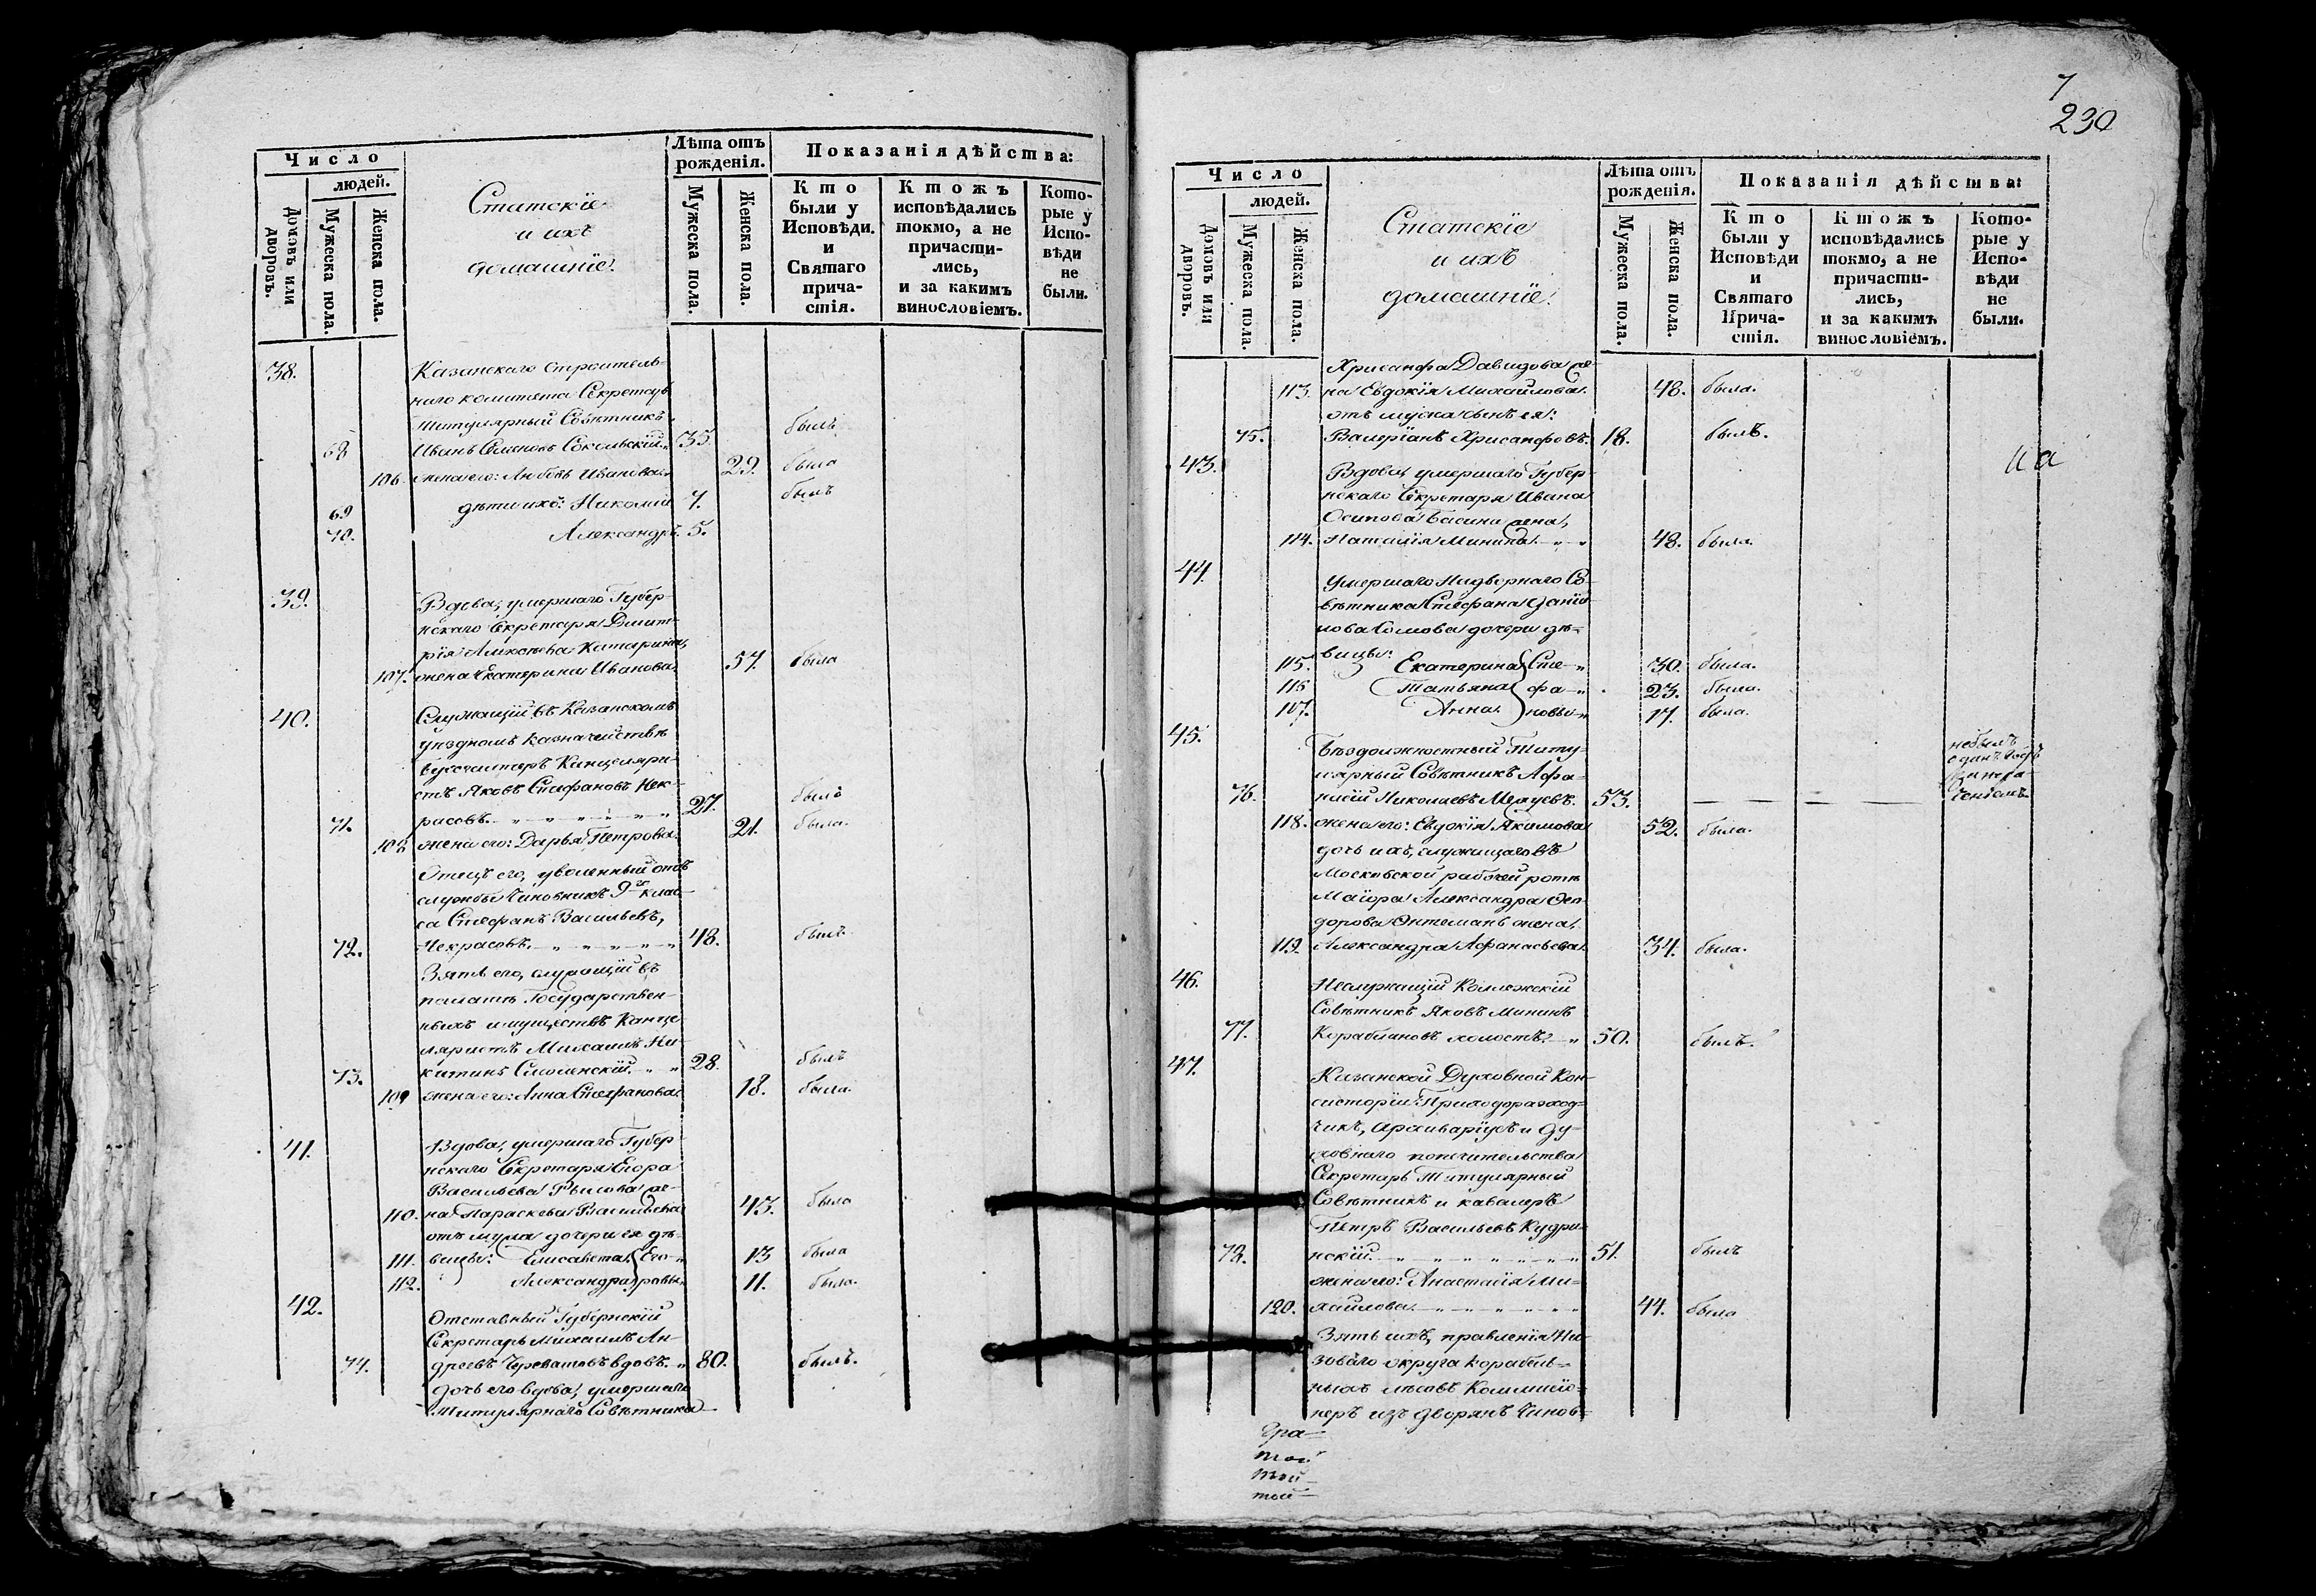 Число
людей.
Домовъ или дворовъ.
Мужеска пола.
Женска пола.
Статскіе
и ихъ
домашніе.
Лѣта отъ рожденія.
Мужеска пола.
Женска пола.
Показанія дѣйства:
Кто были у Исповѣди. и Святаго причастія.
Ктожъ исповѣдались токмо, а не причастились, и за какимъ винословіемъ.
Которые у Исповѣди не были.
38. Казанскаго Строитель-
наго комитета Секретарь
Титулярный Совѣтникъ
68 Иванъ Семеновъ Сокольскій 35. былъ
106. жена его: Любовь Иванова 29. была
69 дѣти ихъ: Николай 7. былъ
70. Александръ 5.
39. Вдова, умершаго Губер-
нскаго Секретаря Дмит-
рія Алексѣева Катарина,
107. жена Екатерина Иванова 57. была
40. Служащій въ Казанскомъ
уѣздномъ казначействѣ
бухгалтеръ Канцеляри-
стъ Яковъ Стефановъ Нек-
71. расовъ. 27. былъ
108 жена его: Дарья Петрова 21. была.
Отецъ его, уволенный отъ
службы Чиновникъ 9го клас-
са Стефанъ Васильевъ,
72. Некрасовъ. 48. былъ
Зять его, служащій въ
палатѣ Государствен-
ныхъ имуществъ Канце-
ляристъ Михаилъ Ни-
73. китинъ Смоленскій. 28. былъ
109 жена его: Анна Стефанова 18. была.
41. Вдова, умершаго Губер-
нскаго Секретаря Егора
Васильева Рысова же-
110. на Параскева Васильева 43. была
отъ мужа дочери ея дѣ-
111. вицы: Елисавета Его- 13 была
112. Александра ровы 11. была.
42. Отставный Губернскій
Секретарь Михаилъ Ан-
74. дреевъ Череватовъ вдовъ. 80. былъ.
дочь его вдова, умершаго
Титулярнаго Совѣтника
7
230
Число
людей.
Домовъ или дворовъ.
Мужеска пола.
Женска пола.
Статскіе
и ихъ
домашніе.
Лѣта отъ рожденія.
Мужеска пола.
Женска пола.
Показанія дѣйства:
Кто были у Исповѣди и Святаго Причастія.
Ктожъ исповѣдались токмо, а не причастились, и за какимъ винословіемъ.
Которые у Исповѣди не были.
Хрисанфа Давидова же-
113. на Евдокія Михайлова. 48. была.
отъ мужа сынъ ея:
75. Валеріанъ Хрисанфовъ. 18. былъ.
43. Вдова, умершаго Губер-
нскаго Секретаря Ивана
Осипова Басина жена,
114. Наталія Минина 48. была.
44. Умершаго Надворнаго Со-
вѣтника Стефана Дани-
лова Сомова дочери дѣ-
вицы:
115. Екатерина Сте- 30. была.
116 Татьяна фа- 23. была.
117. Анна новы 17. была.
45. Бездолжностный Титу-
лярный Совѣтникъ Афа-
76. насій Николаевъ 53. — — — —
небылъ
одинъ годъ
118. жена его: Евдокія Якимова 52. была.
дочь ихъ, служащаго въ
Московской рабочей ротѣ
Маіора Александра Ѳео-
дорова жена,
119. Александра Афанасьева. 34. была.
46. Неслужащій Коллежскій
Совѣтникъ Яковъ Мининъ
77. Кораблановъ холостъ. 50. былъ.
47. Казанской Духовной Кон-
систоріи Приходорасход-
чикъ, Архиваріусъ и Ду-
ховнаго попечительства
Секретарь Титулярный
Совѣтникъ и кавалеръ
Петръ Васильевъ Кудри-
78. нскій. 51. былъ
жена его: Анастасія Ми-
120. хайлова. 44. была
Зять ихъ, правленія Ни-
зоваго округа корабель-
ныхъ лѣсовъ Коммисіо-
неръ изъ дворянъ Чинов-